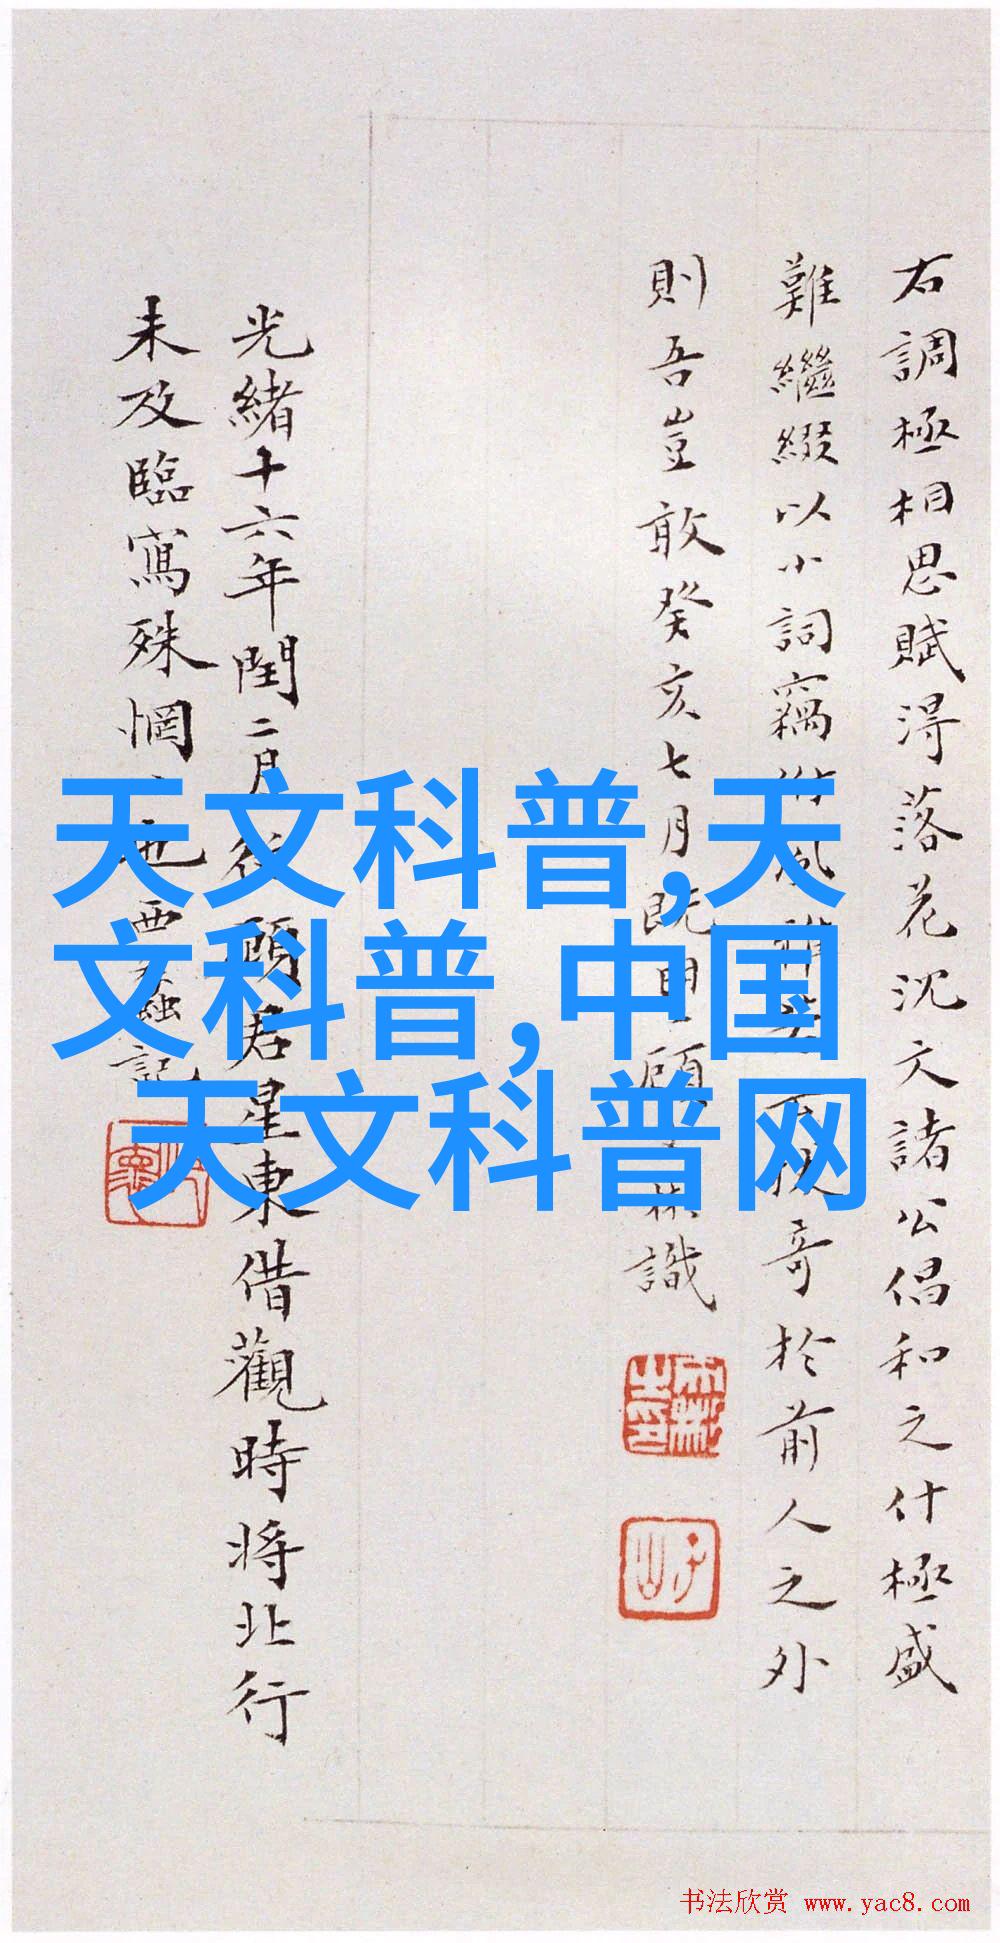 右調極相思賦得落花沈文諸公倡和之什極盛
難繼綴以小詞竊附風雅
哥於前人之外
則吾豈敢癸亥七月既望顧
識
光緒十六年閏二月從顧君星東借觀時將北行
未及臨寫殊惘
也西蠡記
天文科普,天
文科普,中国
天文科普网
书法欣赏 www.yac8.com